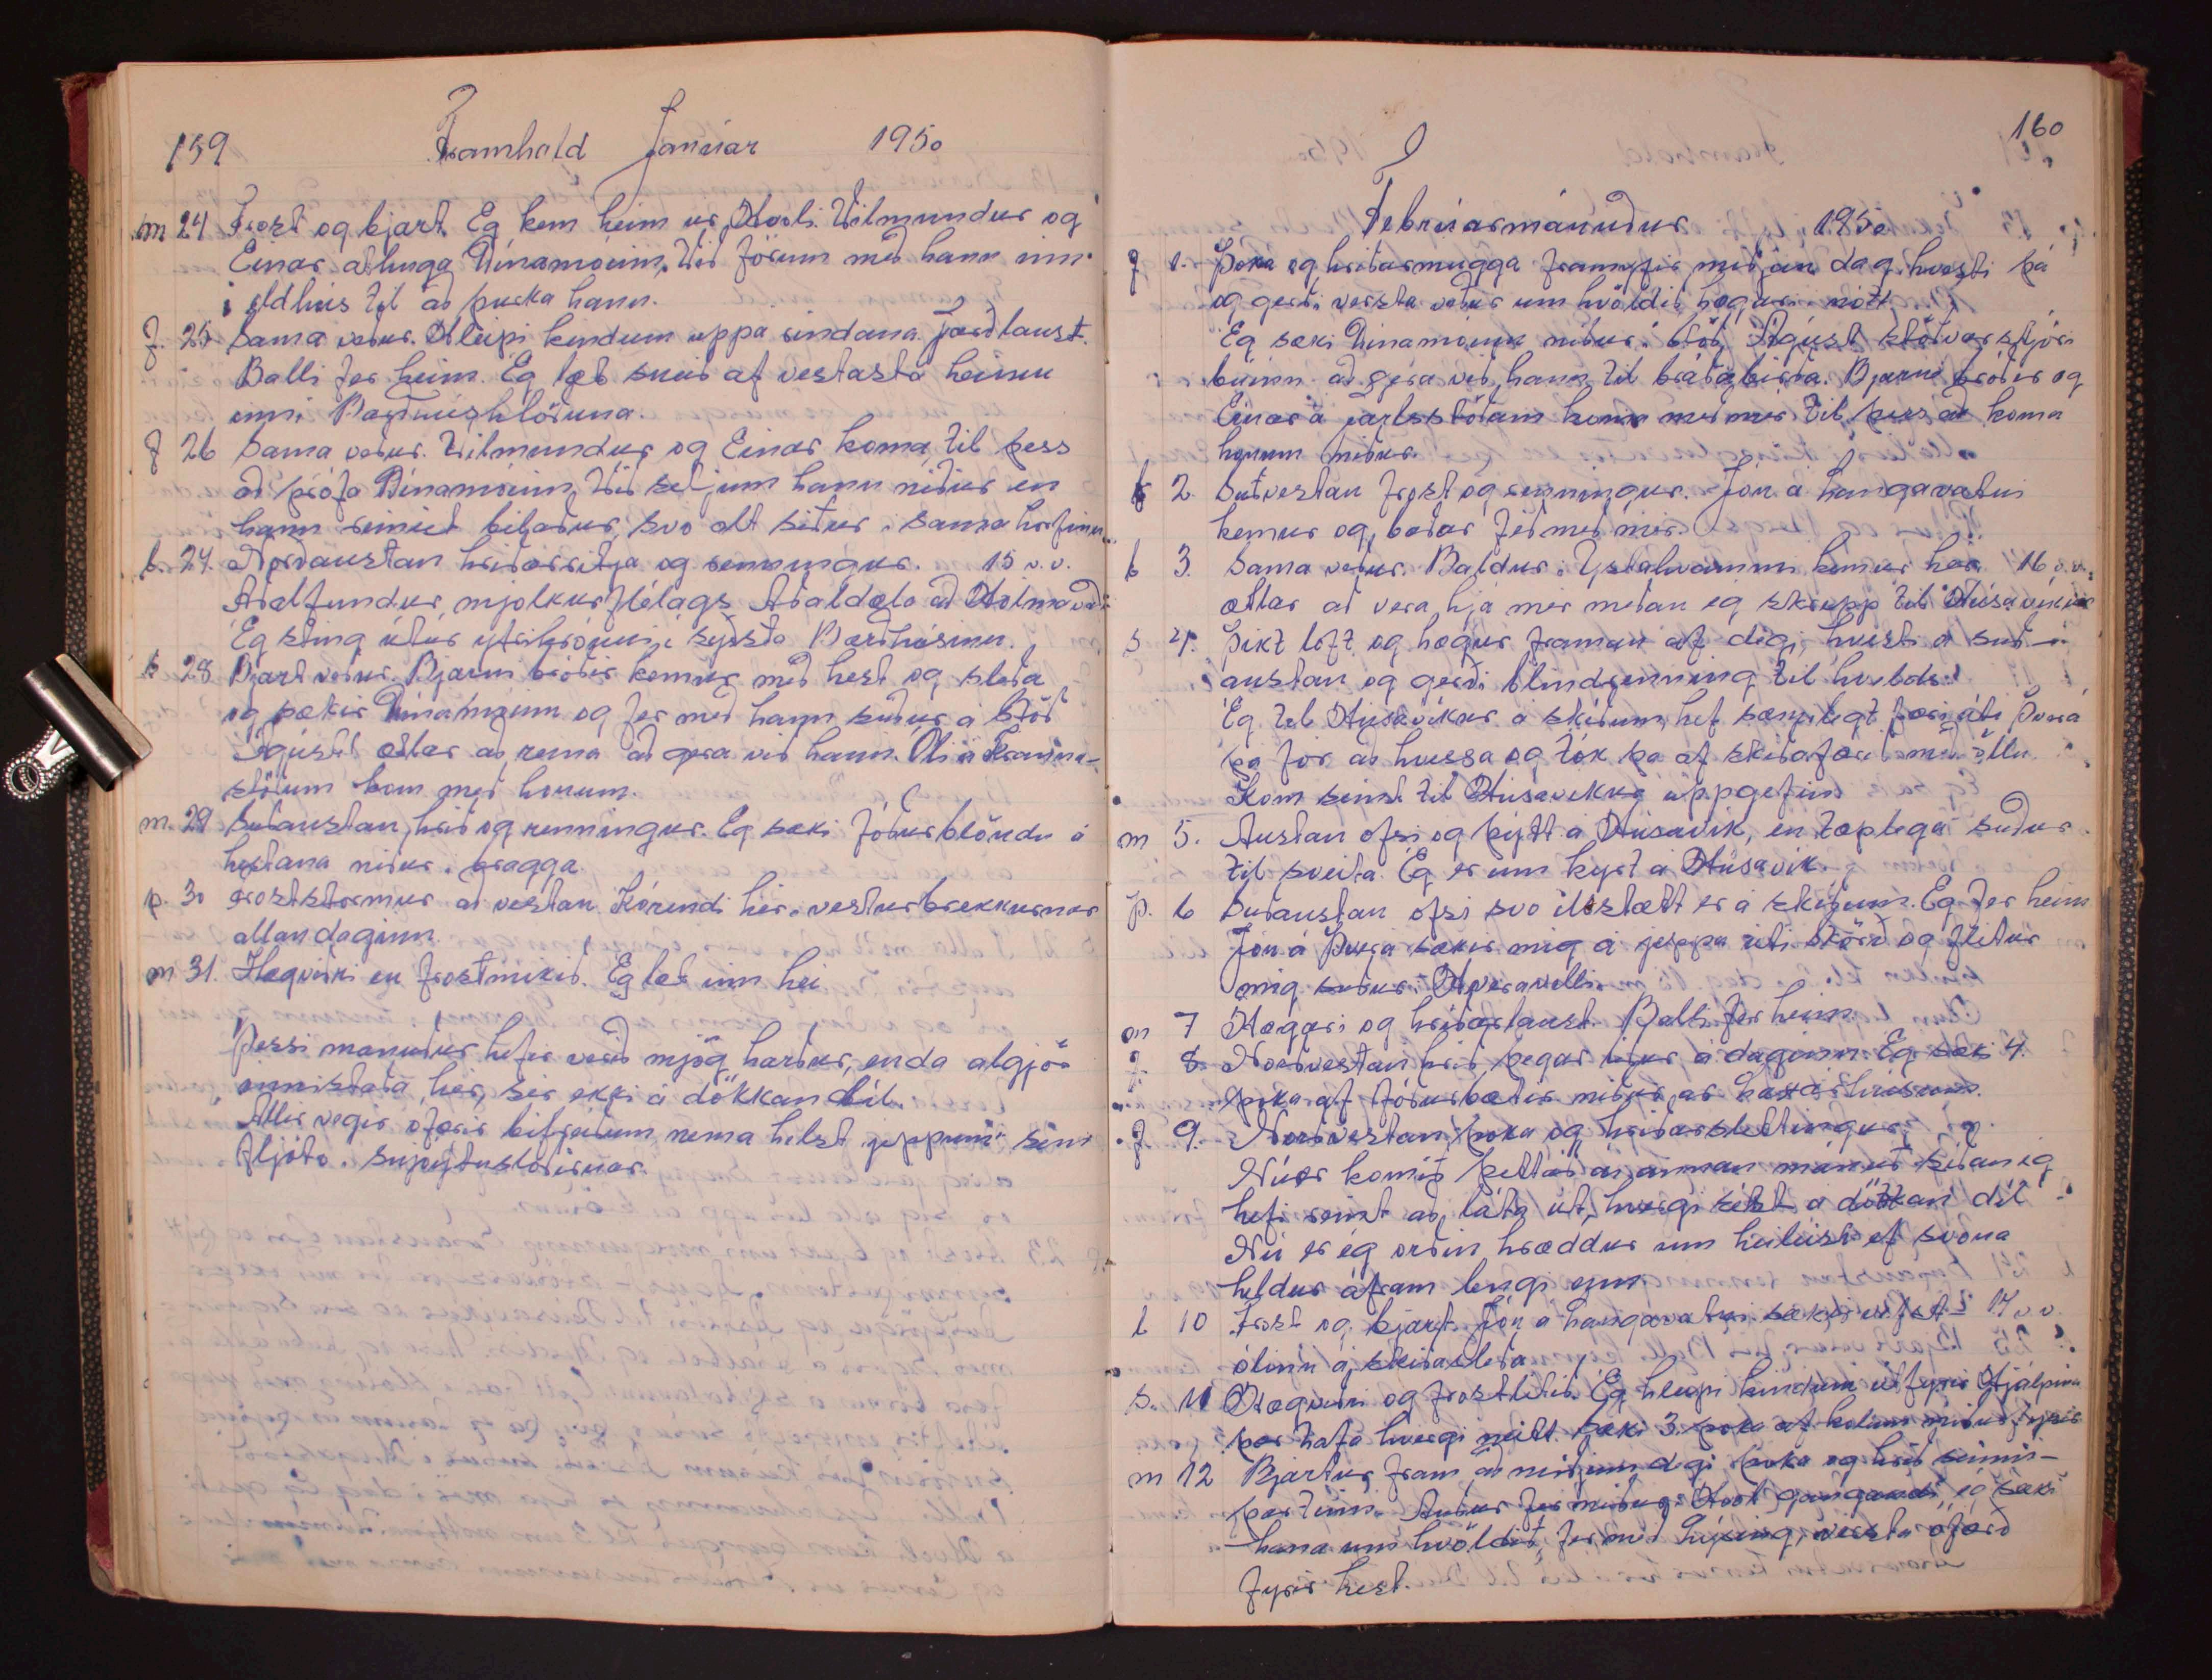 159
Framhald Janúar 1950
m 24 Frost og bjart. Eg kem heim ur Hvoli. Vilmundur og
Einar athuga Dinamóinn. Við förum með hann inn
i eldhús til að þurka hann.
f. 25 Sama veður. Hleipi kindum uppa rindana jarðlaust.
Balli fer heim. Eg læt sneið af vestasta heinu
inni
f 26 Sama veður. Vilmundur og Einar koma til þess
að prófa Dinamóinn, Við setjum hann niður en
hann reinist bilaður, svo alt situr i sama horfinu
l. 27. Norðaustan hriðarritja og renningur. 15 v.v.
Aðalfundur mjolkurflélags Aðaldæla að Hólmavaði
Eg sting útúr ytrikrónni i syðsta Barðhúsinu.
s 28 Bjart veður. Bjarni bróðir kemur með hest og sleða
og sækir Dínamóinn og fer með hann suður á Stöð
Ágúst ætlar að reina að gera við hann. Óli á
stöðum kom með honum.
m. 29 Suðaustan hrið og renningur. Eg sæki fóðurblöndu á
hestana niður i bragga
þ. 30 Froststormur að vestan Kórendi hér i vesturbrekkurnar
allan daginn.
m 31. Hægviðri en frostmikið. Eg læt inn hei
Þessi manuður hefir verið mjög harður, enda algjör
innistaða hér, sér ekki á dökkan díl.
Allir vegir ofærir bifreiðum nema helst jeppum sem
fljóta. snjoýtuslóðirnar.
160
Febrúarmánuður 1950
f 1. Þoka og hriðarmugga framyfir miðjan dag. hvesti þá
og gerði versta veður um kvöldið hægari i nótt
Eg sæki Dinamóinn niður i Stöð, Ágúst stöðvarstjóri
búinn að gera við hann til bráðabirða. Bjarni bróðir og
Einar á jarlsstöðum koma með mér til þess að koma
honum niður.
f 2. Suðvestan frost og renningur. Jón á Langavatni
kemur og baðar féð með mér.
l 3. Sama veður. Baldur i Ystahvammi kemur hér 16 v.v.
ætlar að vera hjá mér meðan eg skrepp til Húsavíkur
s 4. Þikt loft og hægur framan af degi, hvesti á suð-
austan og gerði blindrenning til kvelds.
Eg til Húsavíkur á skíðum, hef sæmilegt færi úti Þverá
þá fór að hvessa og tók þá af skíðafærið með öllu.
Kom seint til Húsavíkur uppgefinn
m 5. Austan ofsi og þýtt á Húsavík, en tæplega suður
til sveita. Eg er um kyrt á Húsavík.
þ. 6 Suðaustan ofsi svo illstætt er á skíðum. Eg fer heim
Jón á Þverá sækir mig á jeppa úti skörð og flitur
mig suður i Hveravelli.
m 7 Hægari og hriðarlaust. Balli fer heim
f. 8. Norðvestan hrið þegar á daginn. Eg sæki 4.
poka af fóðurbætir niður
f 9. Norðvestan þoka og hriðarslettingur.
Nú er komið þettað á annan mánuð síðan eg
hefi reint að láta út, hvergi sést á dökkan díl
Nú er ég orðin hræddur um heileisi ef svona
heldur áfram lengi enn.
l 10 Frost og bjart. Jón á Langavatni sækir 17 v.v.
ólinn á skíðasleða
s. 11 Hægviðri og frostlítið. Eg hleipi kindum útfyrir Hjálpina
þær hafa hvergi neitt. Sæki 3 poka af kolum niður fyrir
m 12 Bjartur fram að miðjum degi þoka og hríð seinni-
partinn. Auður fer niður i Hvol gangandi, eg sæki
hana um kvöldið, fer með versta ófærð
fyrir hest.